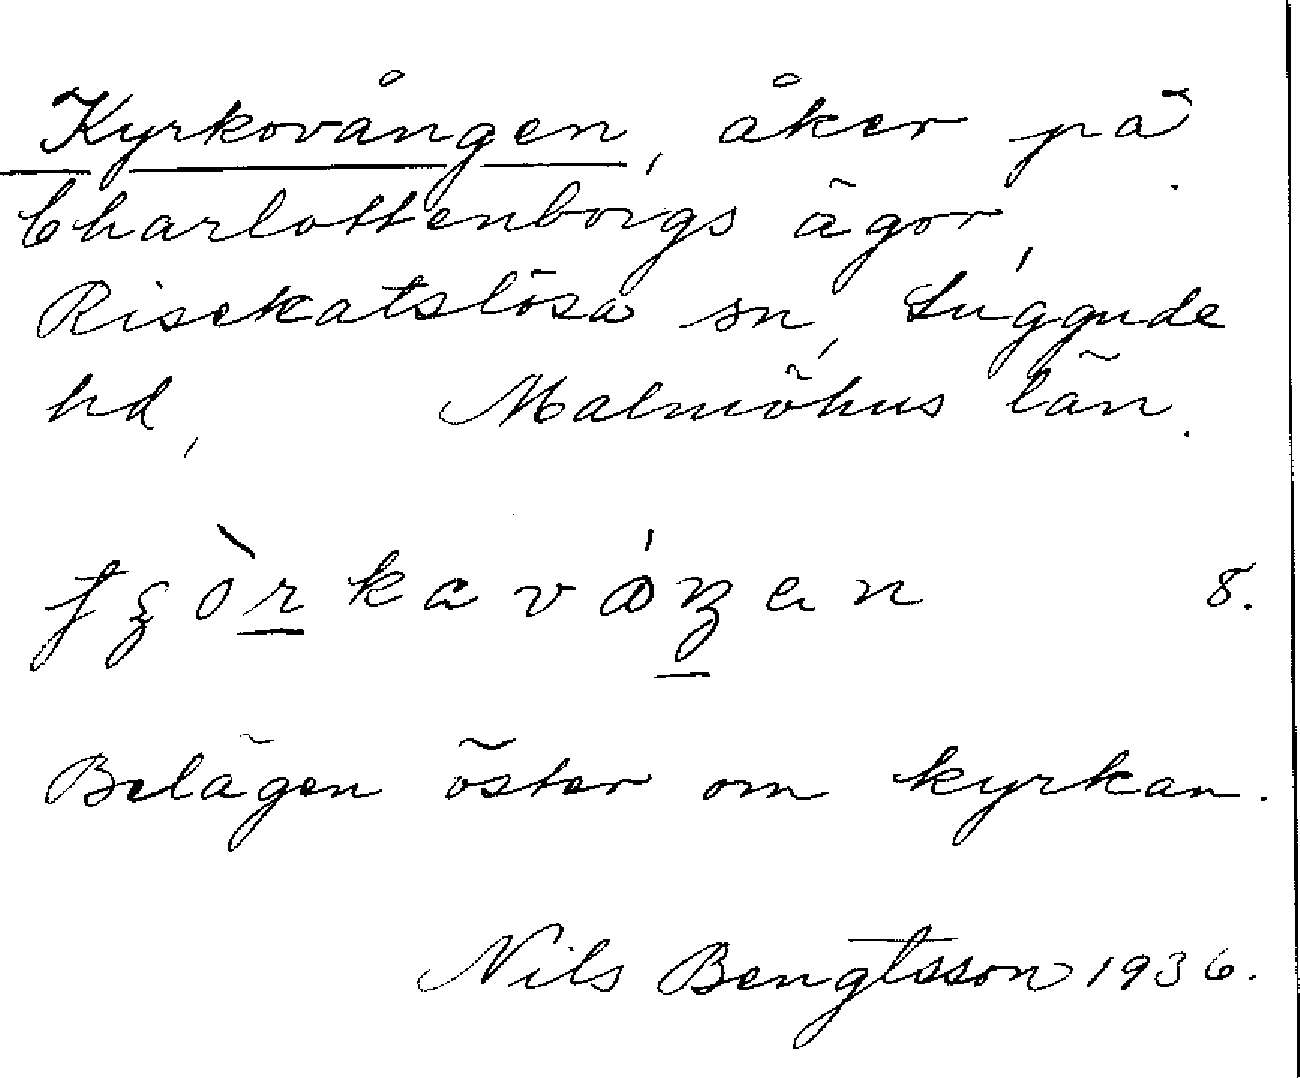 Kyrkovången, åker på
Charlottenborgs ägor,
Risekatslösa sn, Luggude
hd, Malmöhus län.
8.
Belägen öster om kyrkan.
Nils Bengtsson 1936.